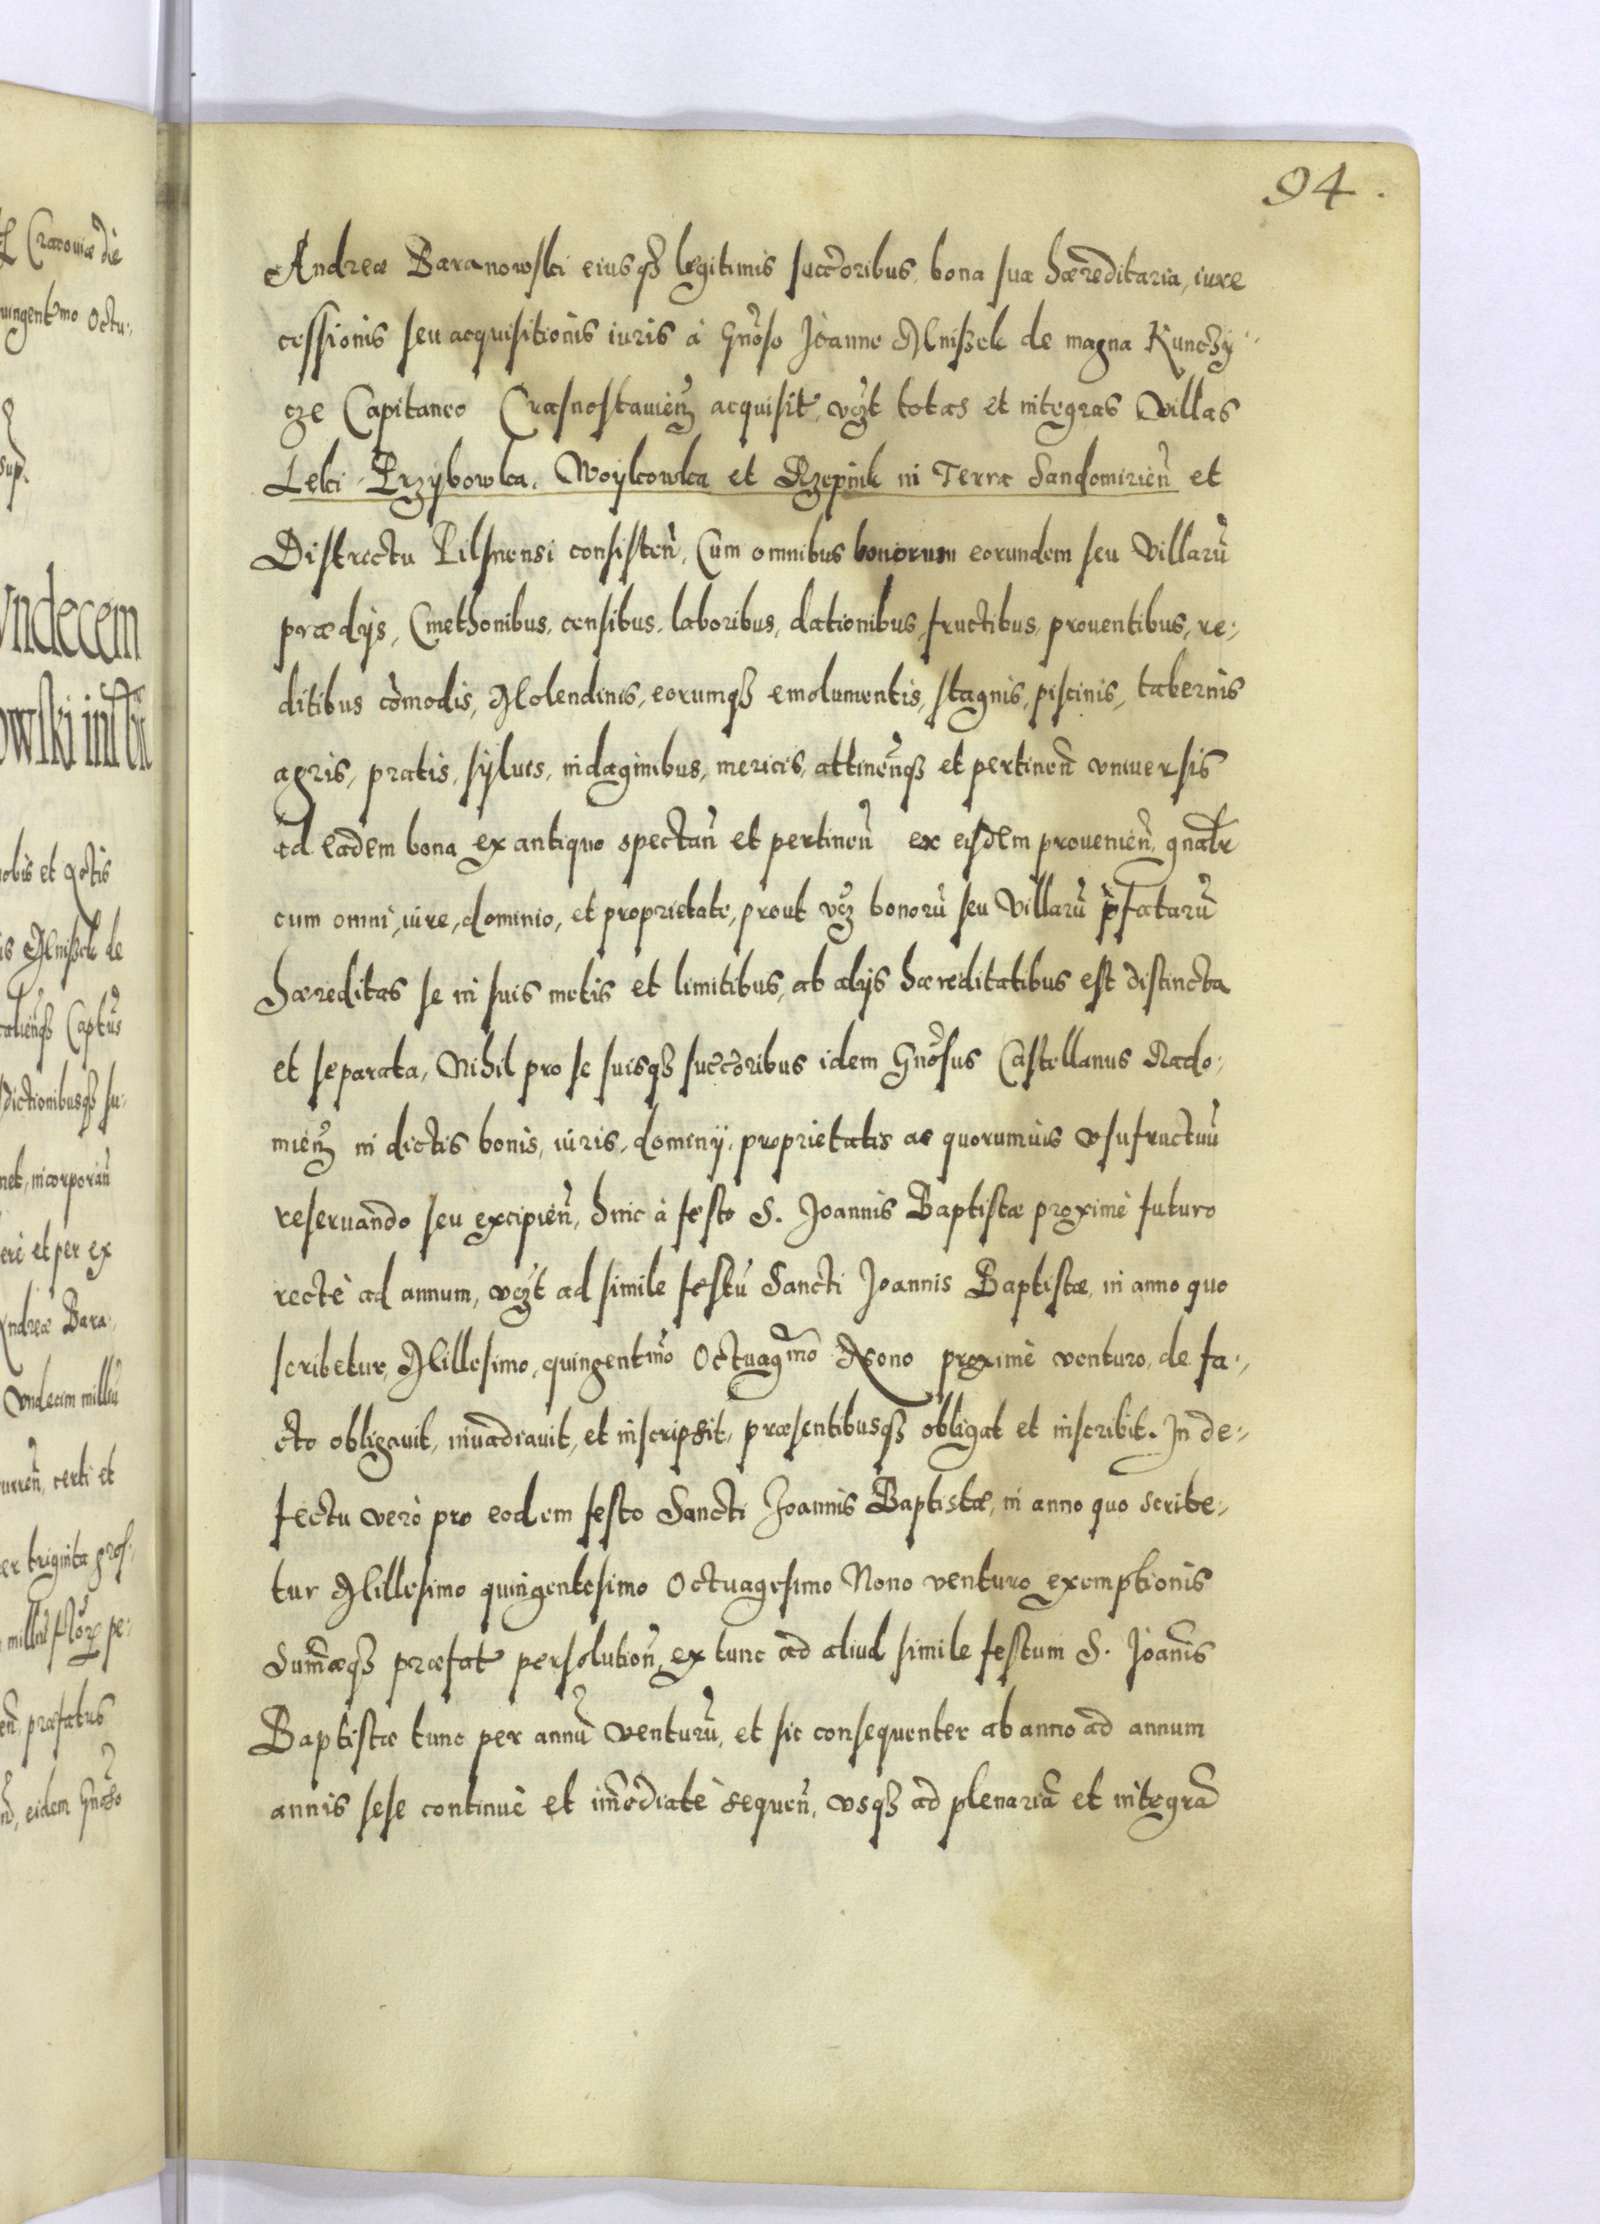 94.
Andreæ Baranowski eiusqȝ legitimis succōribus, bona sua hæreditaria, iure
cessionis seu acquisitionis iuris à Gn̄oso Joanne Mniszek de magna Kunczy-
cze Capitaneo Crasnostauien̄ acquisit, vcȝt totas et integras Villas
Leki Przybowka, Woykowka et Rzepnik in Terra Sandomirien̄ et
Districtu Pilsnensi consisten̄, Cum omnibus bonorum eorundem seu Villarū
prædijs, Cmethonibus, censibus, laboribus, dationibus, fructibus, prouentibus, re-
ditibus cōmodis, Molendinis, eorumqȝ emolumentis, stagnis, piscinis, tabernis
agris, pratis, syluis, indaginibus, mericis, attinen̄qȝ et pertinen̄ vniuersis
ad eadem bona ex antiquo spectan̄ et pertinen̄ ex eisdem prouenien̄, gn̄alr
cum omni iure, dominio, et proprietate, prout vcȝ bonorū seu Villarū p̄fatarū
hæreditas se in suis metis et limitibus, ab alijs hæreditatibus est distincta
et separata, Nihil pro se suisqȝ succōribus idem Gn̄osus Castellanus Rado-
mien̄ in dictis bonis, iuris, dominij, proprietatis ac quorumuis vsufructuū
reseruando seu excipien̄, hinc à festo S. Joannis Baptistæ proximè futuro
rectè ad annum, vcȝt ad simile festū Sancti Joannis Baptistæ, in anno quo
scribetur, Millesimo, quingentmo Octuagmo Nono proximè venturo, de fa-
cto obligauit, inuadiauit, et inscripsit, præsentibusqȝ obligat et inscribit. In de-
fectu verò pro eodem festo Sancti Joannis Baptistæ, in anno quo scribe-
tur Millesimo quingentesimo Octuagesimo Nono venturo exemptionis
Sum̄æqȝ præfat persolution̄, ex tunc ad aliud simile festum S. Joan̄is
Baptistæ tunc per annū venturū, et sic consequenter ab anno ad annum
annis sese continuè et im̄ediatè sequen̄, vsqȝ ad plenariā et integrā